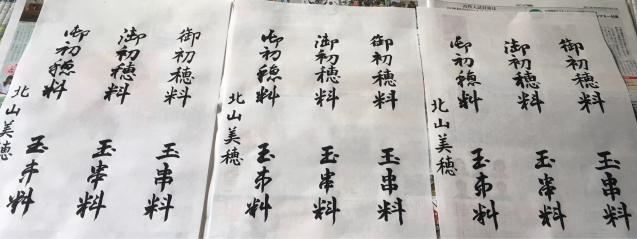 御初穂料 玉串料
御初穂料 玉串料
御初穂料 玉串料
北山美穂
御初穂料 玉串料
御初穂料 玉串料
御初穂料 玉串料
北山美穂
御初穂料 玉串料
御初穂料 玉串料
御初穂料 玉串料
北山美穂